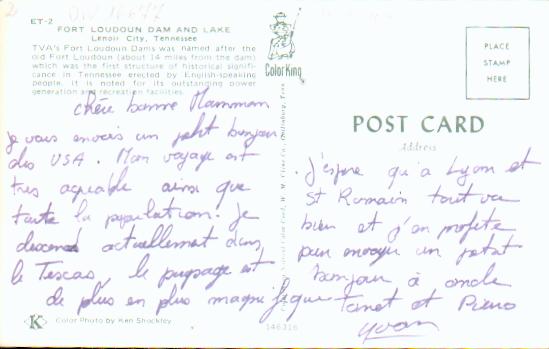 ET-2
FORT LOUDOUN DAM AND LAKE
Lenoir City, Tennessee
TVA's Fort Loudoun Dams was named after the
old Fort Loudoun (about 14 miles from the dam)
which was the first structure of historical signifi-
cance in Tennessee erected by English-speaking
people. It is noted for its outstanding power
generation and recreation facilities.
Color King
PLACE
STAMP
HERE
POST CARD
Address
chère bonne Mamman
je vous envois un petit bonjour
des USA. Mon voyage est
très agréable ainsi que
toute la population. Je
descend actuellement dans
le Texcas, le paysage est
de plus en plus magnifique
J'espère qu'à Lyon et
St Romain tout va
bien et j'en profite
pour envoyer un petit
bonjour à oncle
et
Yvan
Color Photo by Ken Shockley
146316
K